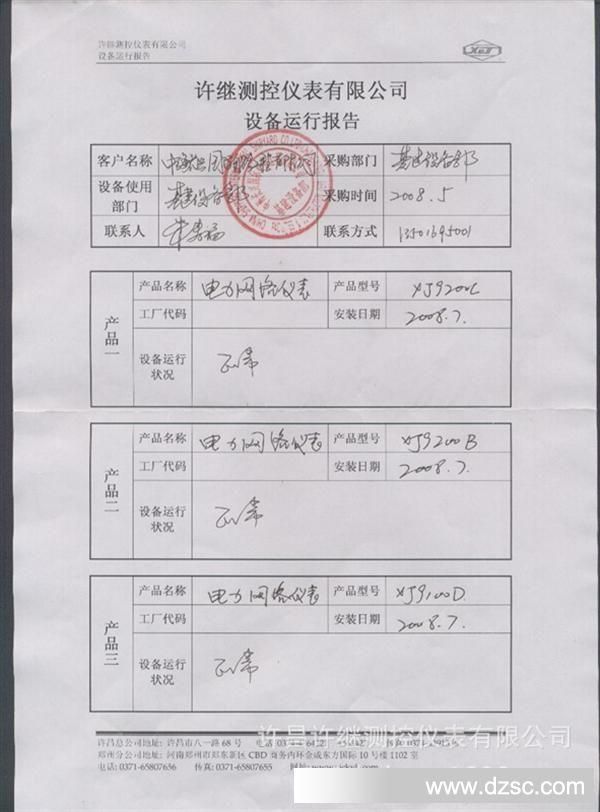 许继测控仪表有限公司
设备运行报告
XJ
许继测控仪表有限公司
设备运行报告
客户名称 采购部门 基建设备部
设备使用部门 基建设备部 采购时间 2008.5
联系人 联系方式 13501695001
产品一
产品名称 电力网络仪表 产品型号 XJ9200C
工厂代码 安装日期 2008.7.
设备运行状况 正常
产品二
产品名称 电力网络仪表 产品型号 XJ9200B
工厂代码 安装日期 2008.7.
设备运行状况 正常
产品三
产品名称 电力网络仪表 产品型号 XJ9100D
工厂代码 安装日期 2008.7.
设备运行状况 正常
许昌许继测控仪表有限公司
许昌总公司地址: 许昌市八一路 68 号
郑州分公司地址: 河南郑州市郑东新区 CBD 商务内环金成东方国际 10 号楼 1102 室
电话: 0371-65807636 传真: 0371-65807655
www.dzsc.com